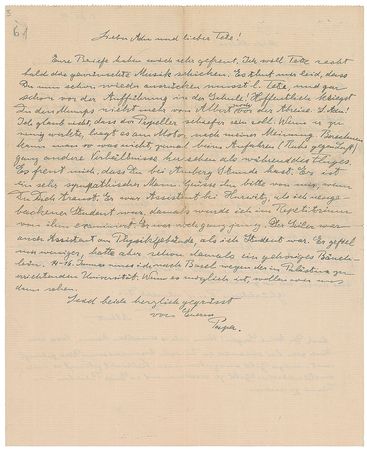 61
Lieber Adn und lieber Tete!
Eure Briefe haben mich sehr gefreut. Ich will Tete recht
bald das gewünschte Musik schicken. Es thut mir leid, dass
Du nun schon wieder ausrücken willst l. Tete, und gar
schon vor der Aufführung in der Schule! Hoffentlich kriegst
Du den Mumps nicht mal, von Albert von der Aheise. L. Adn!
Ich glaube nicht, dass der Propeller schiefer sein soll. Wenn er zu
wenig wirkte, liegt es am Motor nach meiner Meinung. Berechnen
kann man so was nicht, zumal beim Anfahren (Ruhe gegen Luft)
ganz andere Verhältnisse herrschen als während des Fluges.
Es freut mich, dass Du bei Amberg Stunde hast. Er ist
ein sehr sympathischer Mann. Grüss ihn bitte von mir, wenn
Du Dich traust. Er war Assistent bei Hurwitz, als ich neuge-
backener Student war, damals wurde ich im Repetitorium
von ihm examiniert. Er war noch ganz jung. Der Seiler war
auch Assistant am Physikgebäude, als ich Student war. Er gefiel
mir weniger, hatte aber schon damals ein gehöriges Bäuch-
lein. Januar muss ich nach Basel wegen der in Palästina zu
errichtenden Universität. Wenn es möglich ist, wollen wir uns
dann sehen.
Seid beide herzlich gegrüsst
von Eurem
Papa.